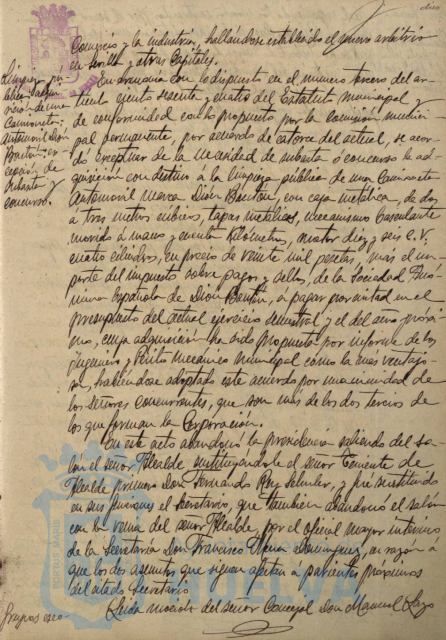 Comercio y la industria, hallándose establecido el mismo arbitrio
en Sevilla y otras Capitales.
Limpieza pú-
blica: adqui-
sición de una
Camioneta
Automóvil Dión
Bouton; ex-
cepción de
subasta y
concurso.
En armonía con lo dispuesto en el número tercero del ar-
tículo ciento sesenta y cuatro del Estatuto Municipal y
de conformidad con lo propuesto por la Comisión munici-
pal permanente, por acuerdo de catorce del actual, se acor-
dó exceptuar de la necesidad de subasta ó concurso la ad-
quisición con destino a la limpieza pública de una Camioneta
Automóvil marca Dión Bouton, con caja metálica, de dos
á tres metros cúbicos, tapas metálicas, mecanismo basculante
movido á mano, kilómetros, motor diez y seis C.V.
cuatro cilindros, en precio de veinte mil pesetas, más el im-
porte del impuesto sobre pagos y sellos, de la Sociedad Anó-
nima Española de Dión Bouton, a pagar por mitad en el
presupuesto del actual ejercicio semestral y el del año próxi-
mo, cuya adquisición ha sido propuesta por informe de los
Ingeniero y Perito mecánico municipal como la más ventajo-
sa, habiéndose adoptado este acuerdo por unanimidad de
los señores concurrentes, que son más de los dos tercios de
los que forman la Corporación.
En este acto abandonó la presidencia saliendo del sa-
lón el señor Alcalde sustituyéndole el señor Teniente de
Alcalde primero Don Fernando Rey, y fué sustituido
en sus funciones el Secretario, que también abandonó el salón
con la venia del señor Alcalde, por el oficial mayor interino
de la Secretaría Don Francisco Mora Domínguez, en razón a
que los dos asuntos que siguen afectan á parientes próximos
del citado Secretario.
Grupos esco-
Leída moción del señor Concejal Don Manuel
PORTUS MARIS
HUELVA